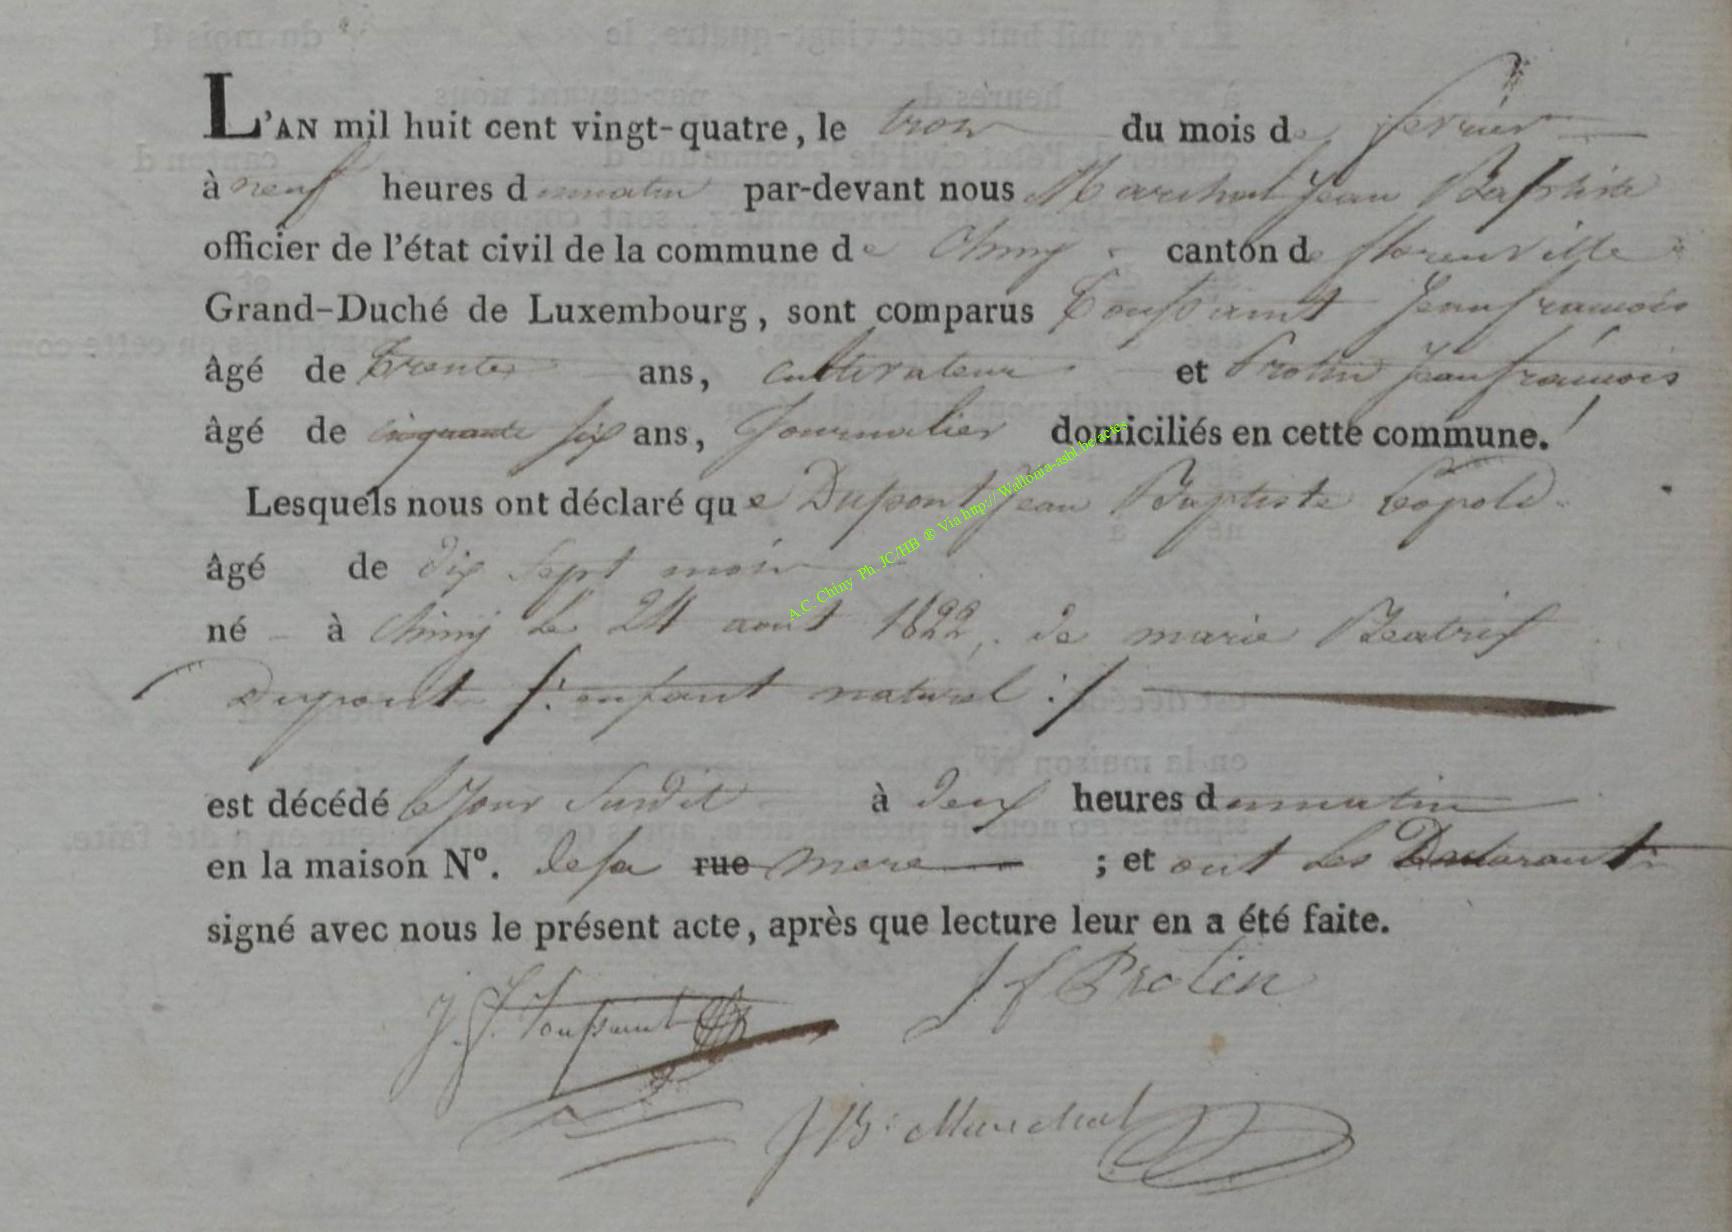 L'AN mil huit cent vingt-quatre, le trois du mois de fevrier
à neuf heures dumatin par-devant nous Marchal Jean Baptiste
officier de l'état civil de la commune de Chiny canton de florenville
Grand-Duché de Luxembourg, sont comparus Toussaint Jean françois
âgé de trente ans, cultivateur et Protin Jean françois
âgé de cinquante six ans, Journalier domiciliés en cette commune.
Lesquels nous ont déclaré que Dupont Jean Baptiste Léopold
âgé de dix sept mois
né à Chiny le 24 aout 1822, de marie Beatrix
Dupont /: enfant naturel :/
est décédé le Jour Susdit à deux heures dumatin
en la maison N°. de sa rue mere ; et ont les Declarants
signé avec nous le présent acte, après que lecture leur en a été faite.
J. f. Toussaint
J f Protin
J B: Marchal
A.C. Chiny Ph. JC/HB ® Via http:// Wallonia-asbl.be actes